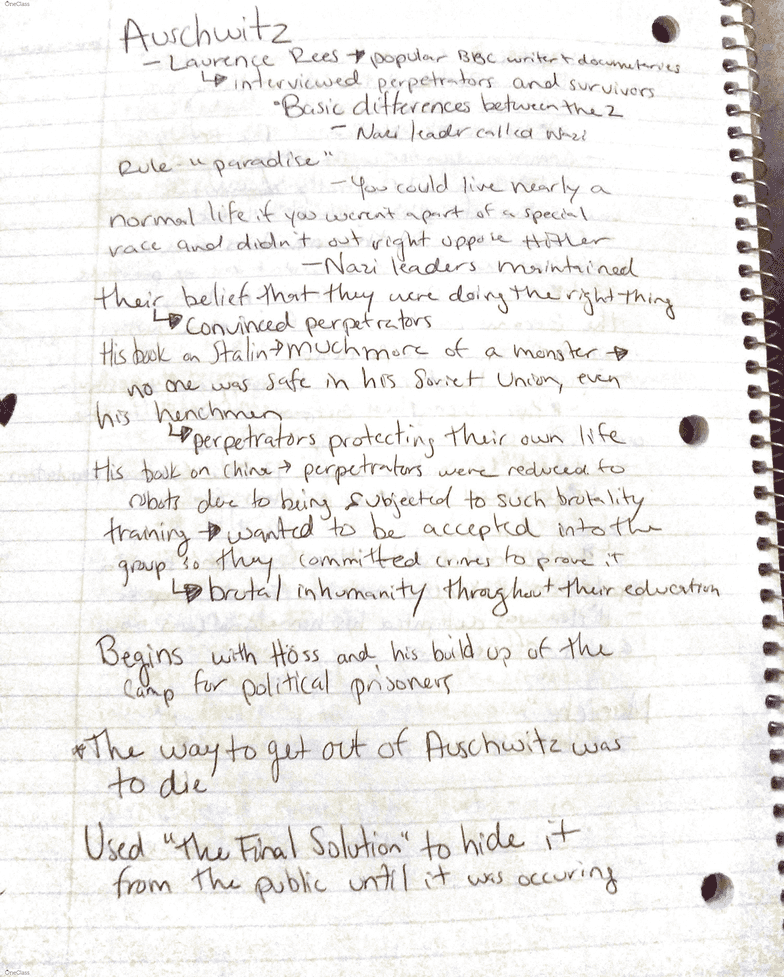 OneClass
Auschwitz
- Laurence Rees → popular BBC writer + documentaries
↳ interviewed perpetrators and survivors
• Basic differences between the 2
- Nazi leadr called Nazi
Rule "paradise"
- You could live nearly a
normal life if you weren't apart of a special
race and didn't out right oppose Hitler
- Nazi leaders maintained
their belief that they were doing the right thing
↳ convinced perpetrators
His book on Stalin → much more of a monster →
no one was safe in his Soviet Union, even
his henchmen
↳ perpetrators protecting their own life
His book on China → perpetrators were reduced to
robots due to being subjected to such brutality
training → wanted to be accepted into the
group so they committed crimes to prove it
↳ brutal inhumanity throughout their education
Begins with Höss and his build up of the
camp for political prisoners
*The way to get out of Auschwitz was
to die
Used "the Final Solution" to hide it
from the public until it was occuring
OneClass